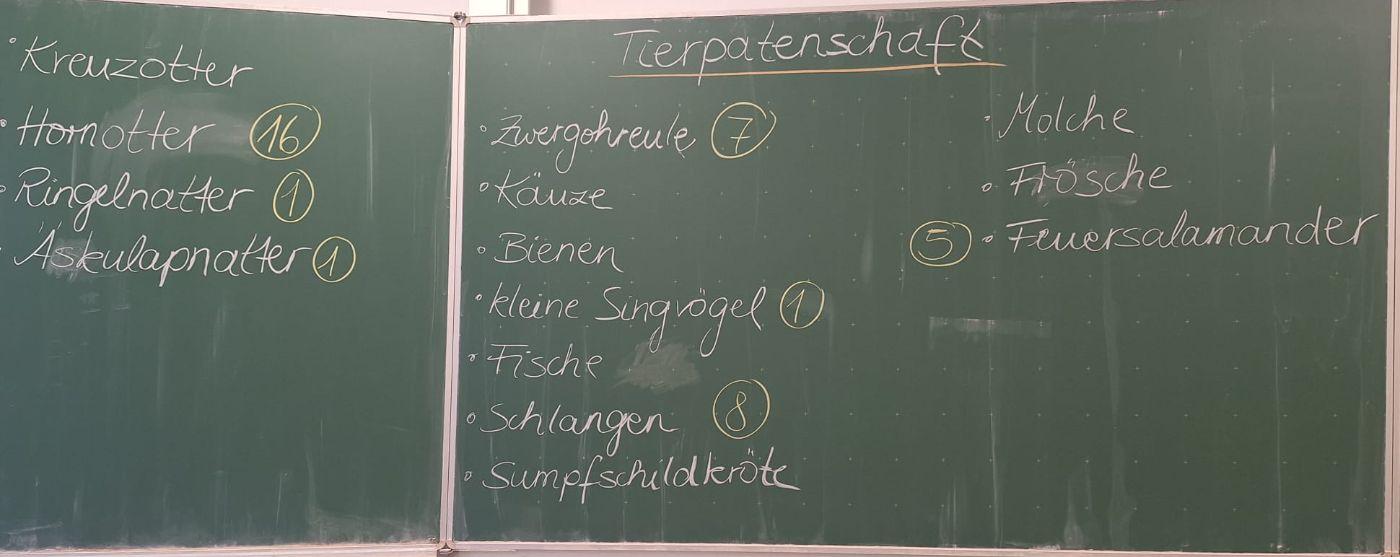 · Kreuzotter
· Hornotter 16
· Ringelnatter 1
· Äskulapnatter 1
Tierpatenschaft
· Zwergohreule 7
· Käuze
· Bienen
· kleine Singvögel 1
· Fische
· Schlangen 8
· Sumpfschildkröte
· Molche
· Frösche
5 · Feuersalamander